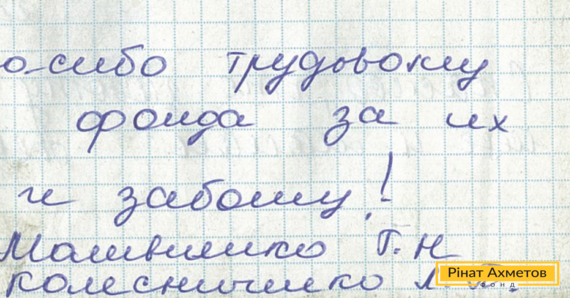 о-сибо трудовому
фонда за их
и заботу!
Матвиенко Г.Н
Колесниченко Л.
Рінат Ахметов
Фонд